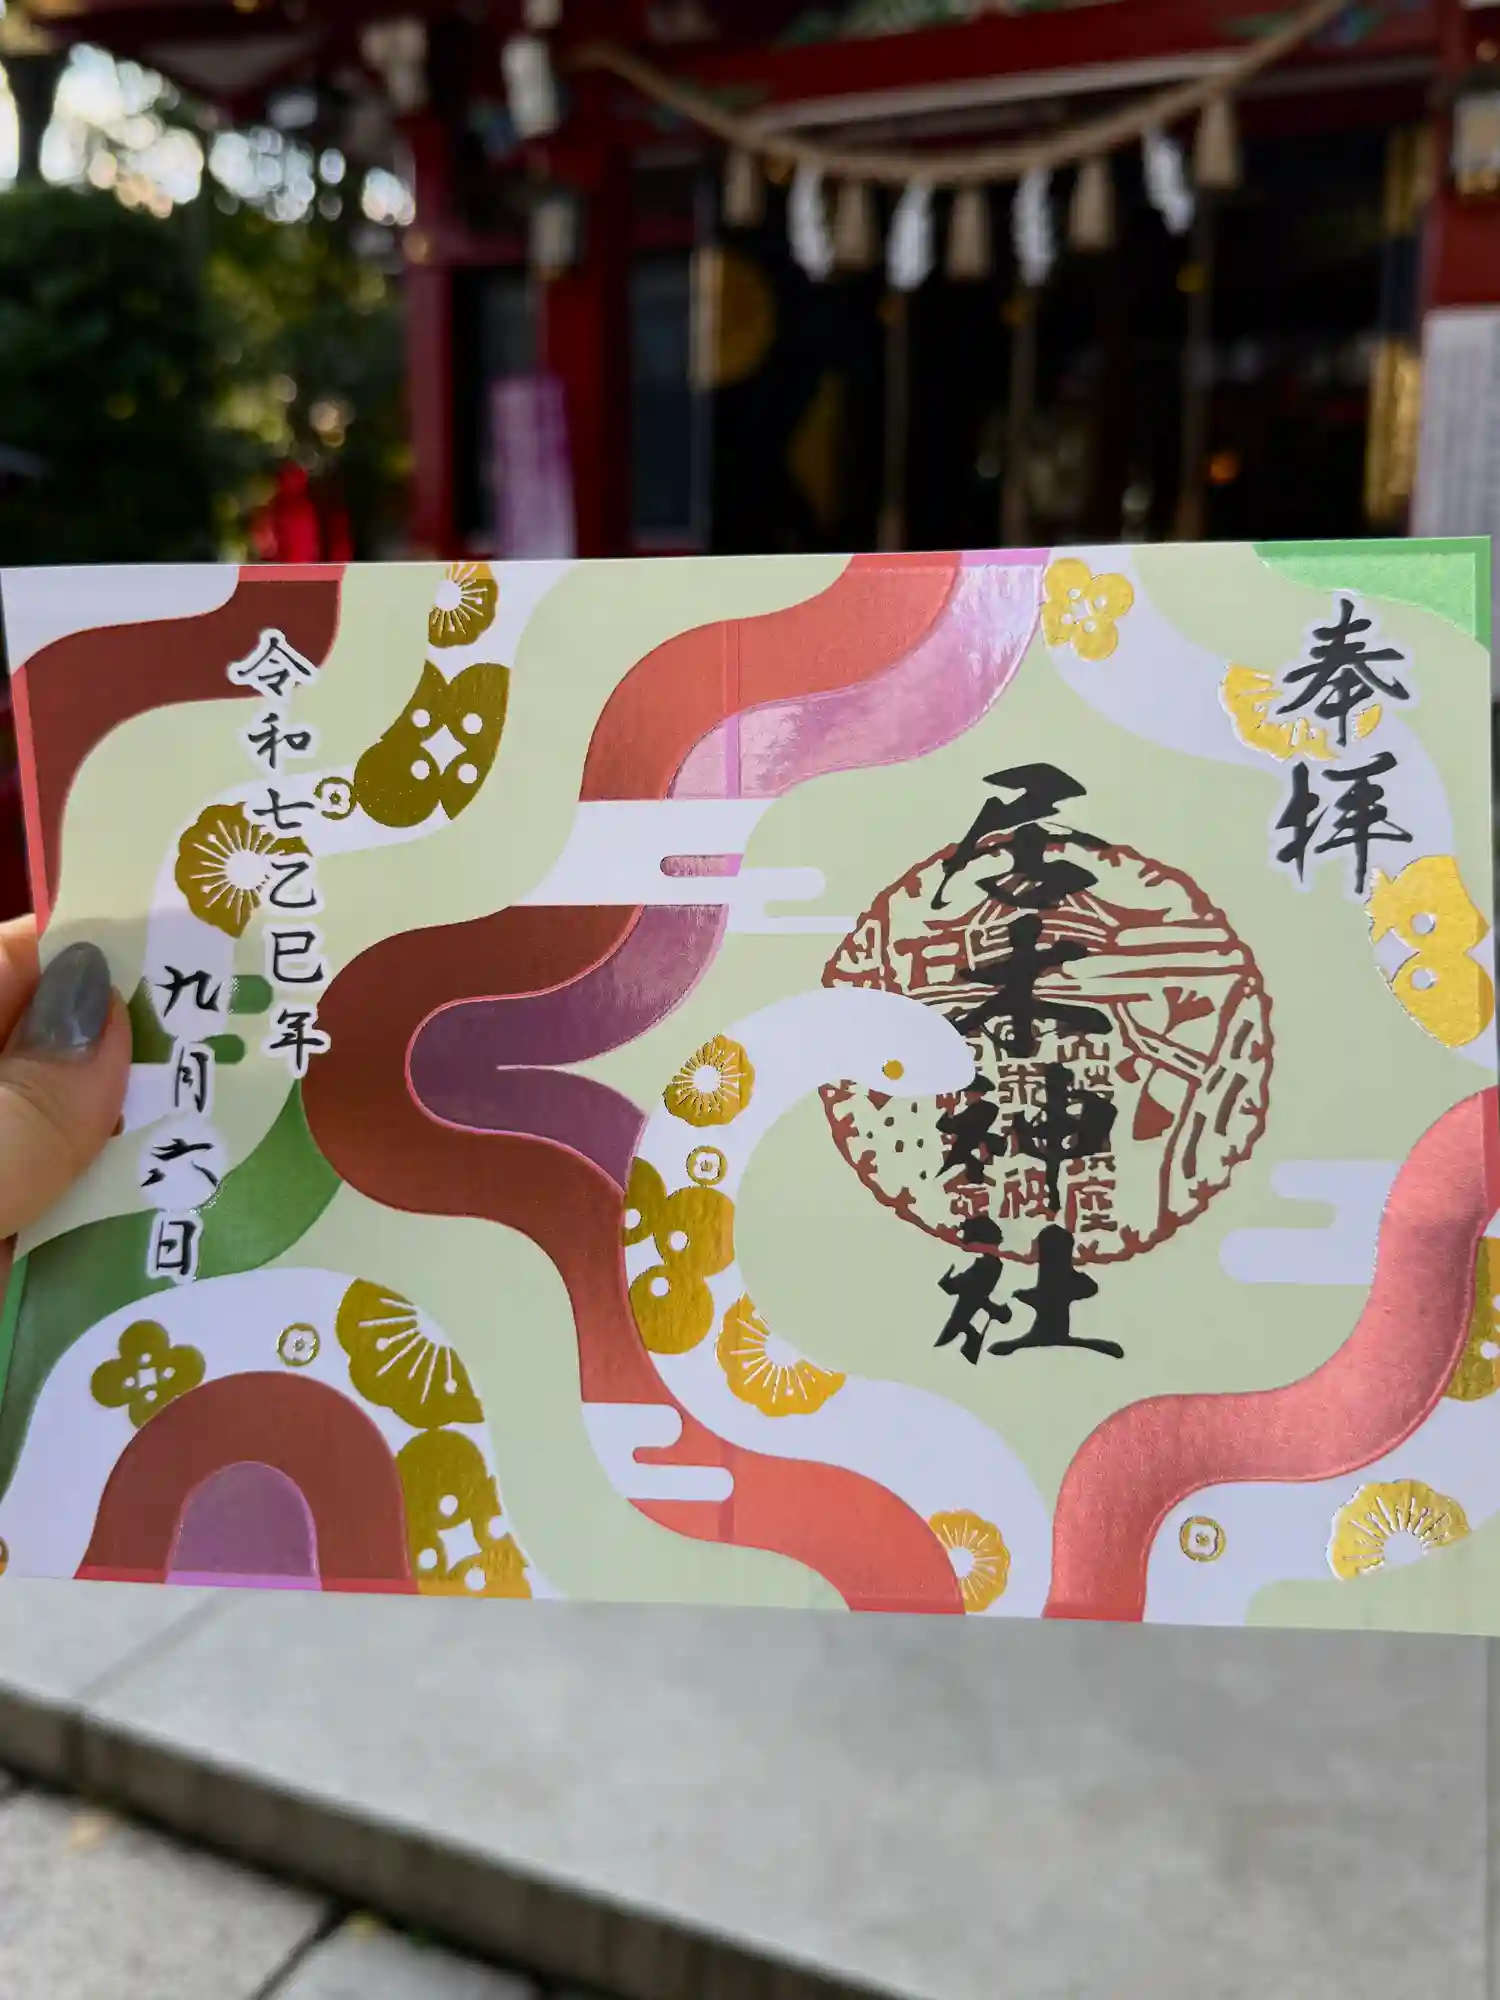 奉拝
居木神社
令和七乙巳年
九月六日